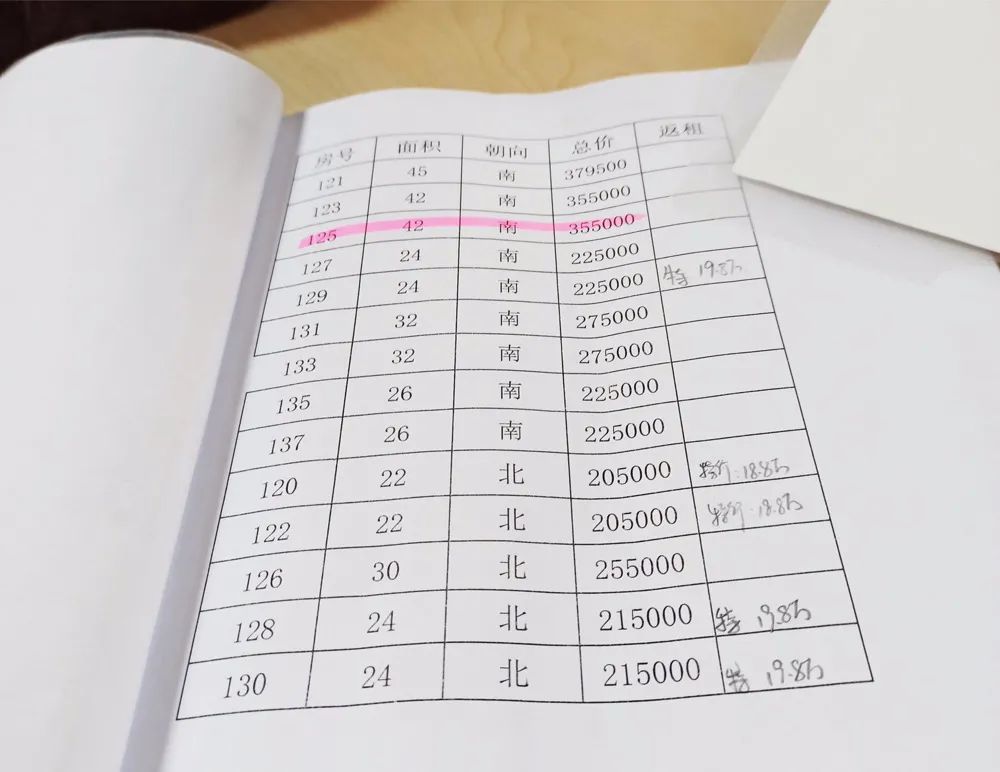 房号 面积 朝向 总价 返租
121 45 南 379500
123 42 南 355000
125 42 南 355000
127 24 南 225000
129 24 南 225000 特 19.8万
131 32 南 275000
133 32 南 275000
135 26 南 225000
137 26 南 225000
120 22 北 205000 特价:18.8万
122 22 北 205000 特价:18.8万
126 30 北 255000
128 24 北 215000 特 19.8万
130 24 北 215000 特 19.8万